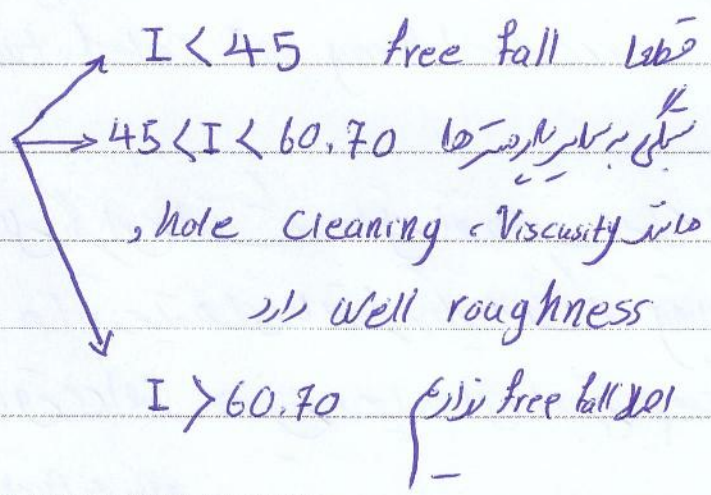 I < 45 free fall قطعا
45 < I < 60,70 بستگی به سایر پارامترها
مانند Viscusity ، hole Cleaning و
well roughness دارد
I > 60,70 اصلا free fall نداریم